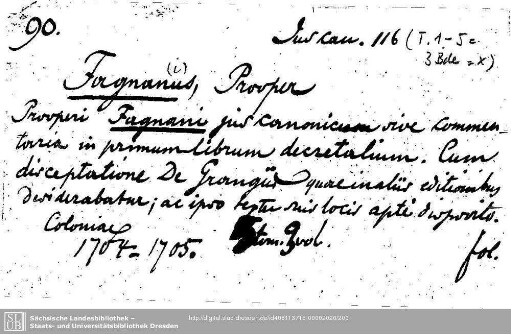 90.
Jus can. 116 (T. 1-5 =
3 Bde = x)
Fagnanus, (i) Prosper
Prosperi Fagnani jus canonicum sive commen-
taria in primum librum decretalium. Cum
disceptatione De Grangiis quae in aliis editionibus
desiderabatur; ac ipso textu suis locis apte disposito.
Coloniae
1704-1705. 5 tom. 3 vol. fol.
Sächsische Landesbibliothek –
Staats- und Universitätsbibliothek Dresden